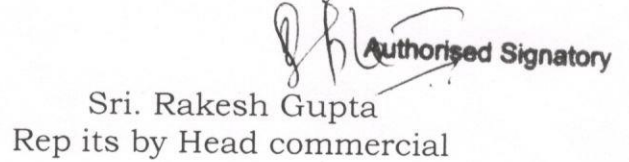 Authorised Signatory
Sri. Rakesh Gupta
Rep its by Head commercial